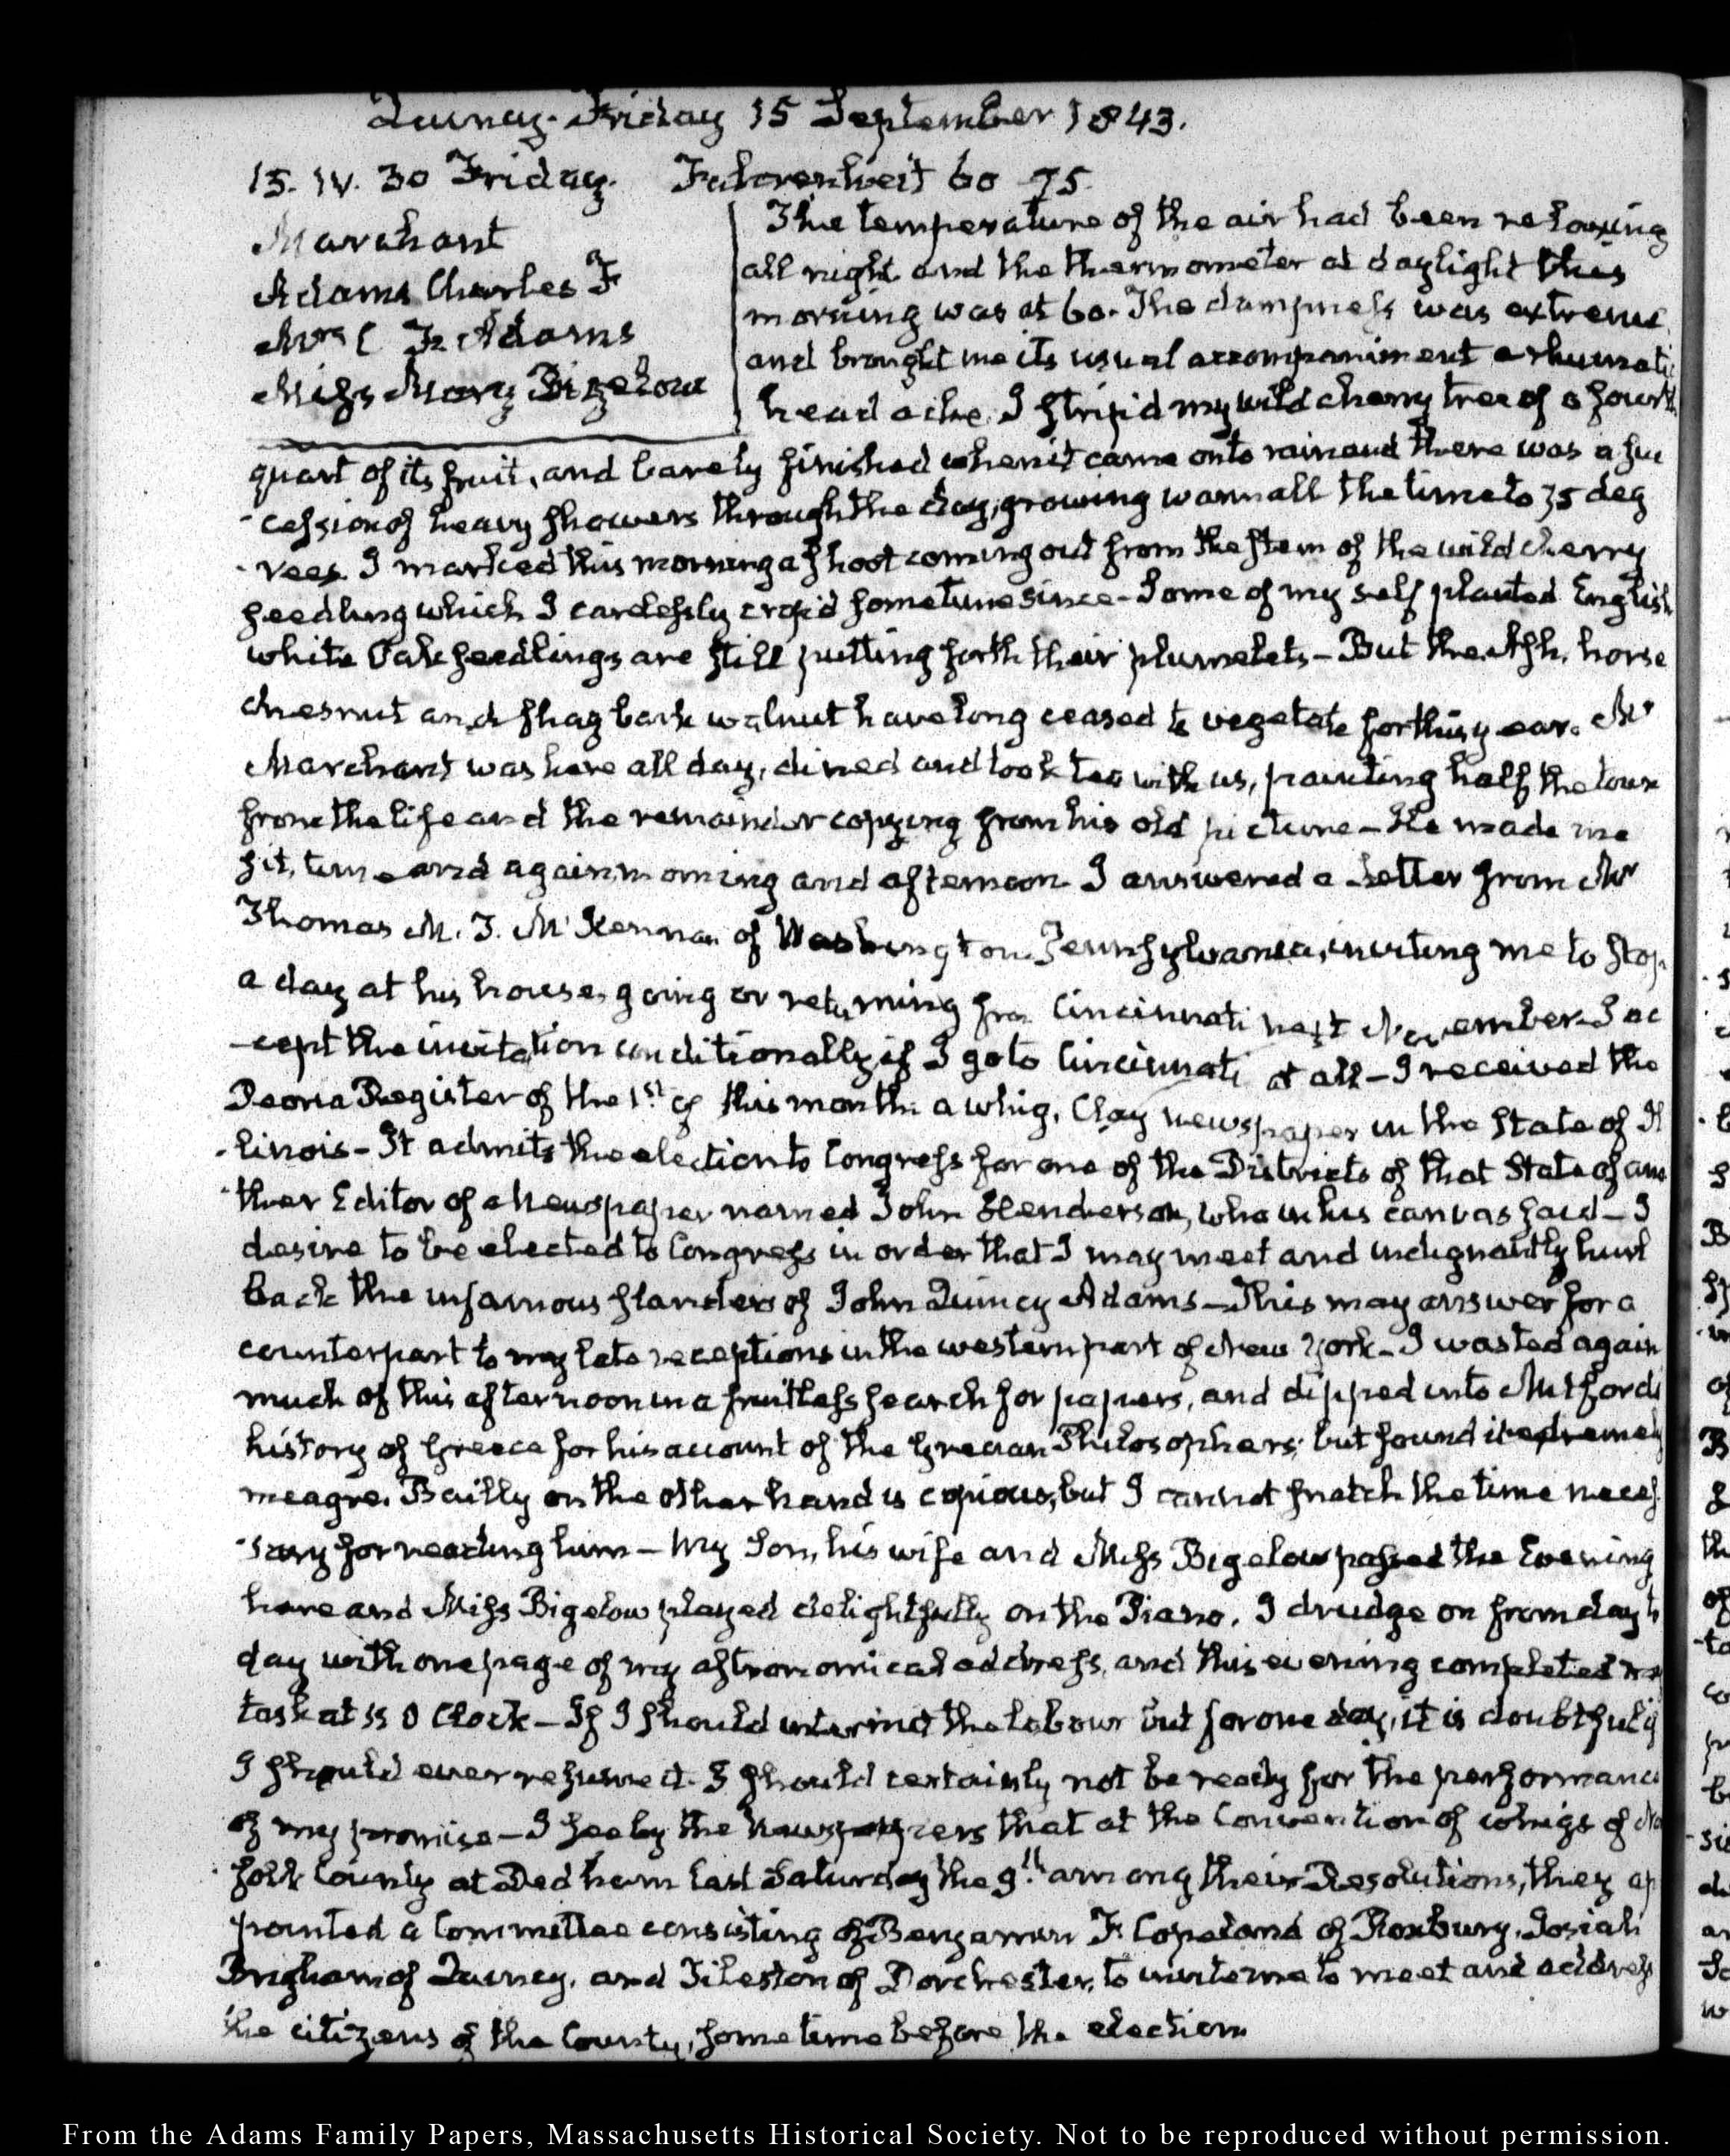 Quincy. Friday 15 September 1843.
15. IV. 30 Friday. Fahrenheit 60 75
Marchant
Adams Charles F
Mrs C F Adams
Miss Mary Bigelow
The temperature of the air had been relaxing
all night and the thermometer at daylight this
morning was at 60. The dampness was extreme
and brought me its usual accompaniment a rhumatic
head ache. I strip'd my wild cherry tree of a fourth
quart of its fruit, and barely finished when it came on to rain and there was a suc
-cession of heavy showers through the day, growing warm all the time to 75 deg
-rees. I marked this morning a shoot coming out from the stem of the wild cherry
seedling which I carelessly crop'd some time since - Some of my self planted English
white Oak seedlings are still putting forth their plumelets - But the Ash, horse
chesnut and shagbark walnut have long ceased to vegetate for this year. Mr
Marchant was here all day, dined and took tea with us, painting half the time
from the life and the remainder copying from his old picture - He made me
sit, time and again, morning and afternoon. I answered a Letter from Mr
Thomas M. T. McKennan of Washington Pennsylvania, inviting me to stop
a day at his house, going or returning from Cincinnati next November. I ac
-cept the invitation conditionally, if I go to Cincinnati at all - I received the
Peoria Register of the 1st of this month a whig, Clay newspaper in the State of Il
-linois - It admits the election to Congress for one of the Districts of that State of ano
-ther Editor of a Newspaper named John Henderson, who in his canvas said - I
desire to be elected to Congress in order that I may meet and indignantly hurl
back the infamous slanders of John Quincy Adams - This may answer for a
counterpart to my late receptions in the western part of New York - I wasted again
much of this afternoon in a fruitless search for papers, and dipped into Mitford's
history of Greece for his account of the Grecian Philosophers; but found it extremely
meagre. Bailly on the other hand is copious, but I cannot snatch the time neces
-sary for reading him - My Son, his wife and Miss Bigelow passed the Evening
here and Miss Bigelow played delightfully on the Piano. I drudge on from day to
day with one page of my astronomical address, and this evening completed my
task at 11 O Clock - If I should intermit the labour but for one day, it is doubtful if
I should ever resume it. I should certainly not be ready for the performance
of my promise - I see by the Newspapers that at the Convention of whigs of No
-folk County at Dedham last Saturday the 9th. among their Resolutions, they ap
pointed a Committee consisting of Benjamin F Copeland of Roxbury, Josiah
Brigham of Quincy, and Tileston of Dorchester, to invite me to meet and address
the citizens of the County, some time before the election
From the Adams Family Papers, Massachusetts Historical Society. Not to be reproduced without permission.